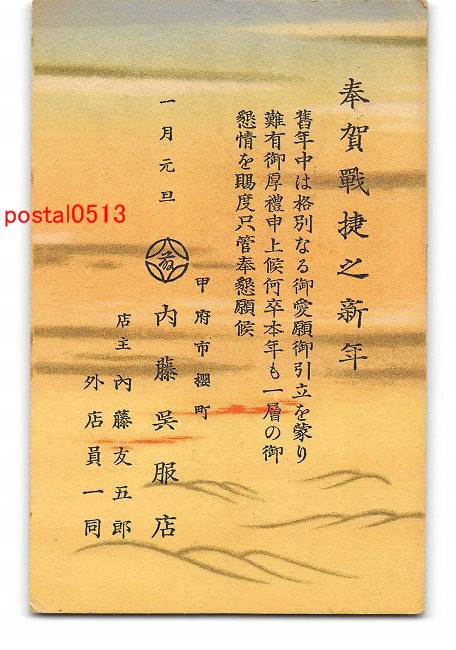 奉賀戰捷之新年
舊年中は格別なる御愛顧御引立を蒙り
難有御厚禮申上候何卒本年も一層の御
懇情を賜度只管奉懇願候
一月元旦
甲府市櫻町
内藤呉服店
店主 内藤友五郎
外店員一同
postal0513